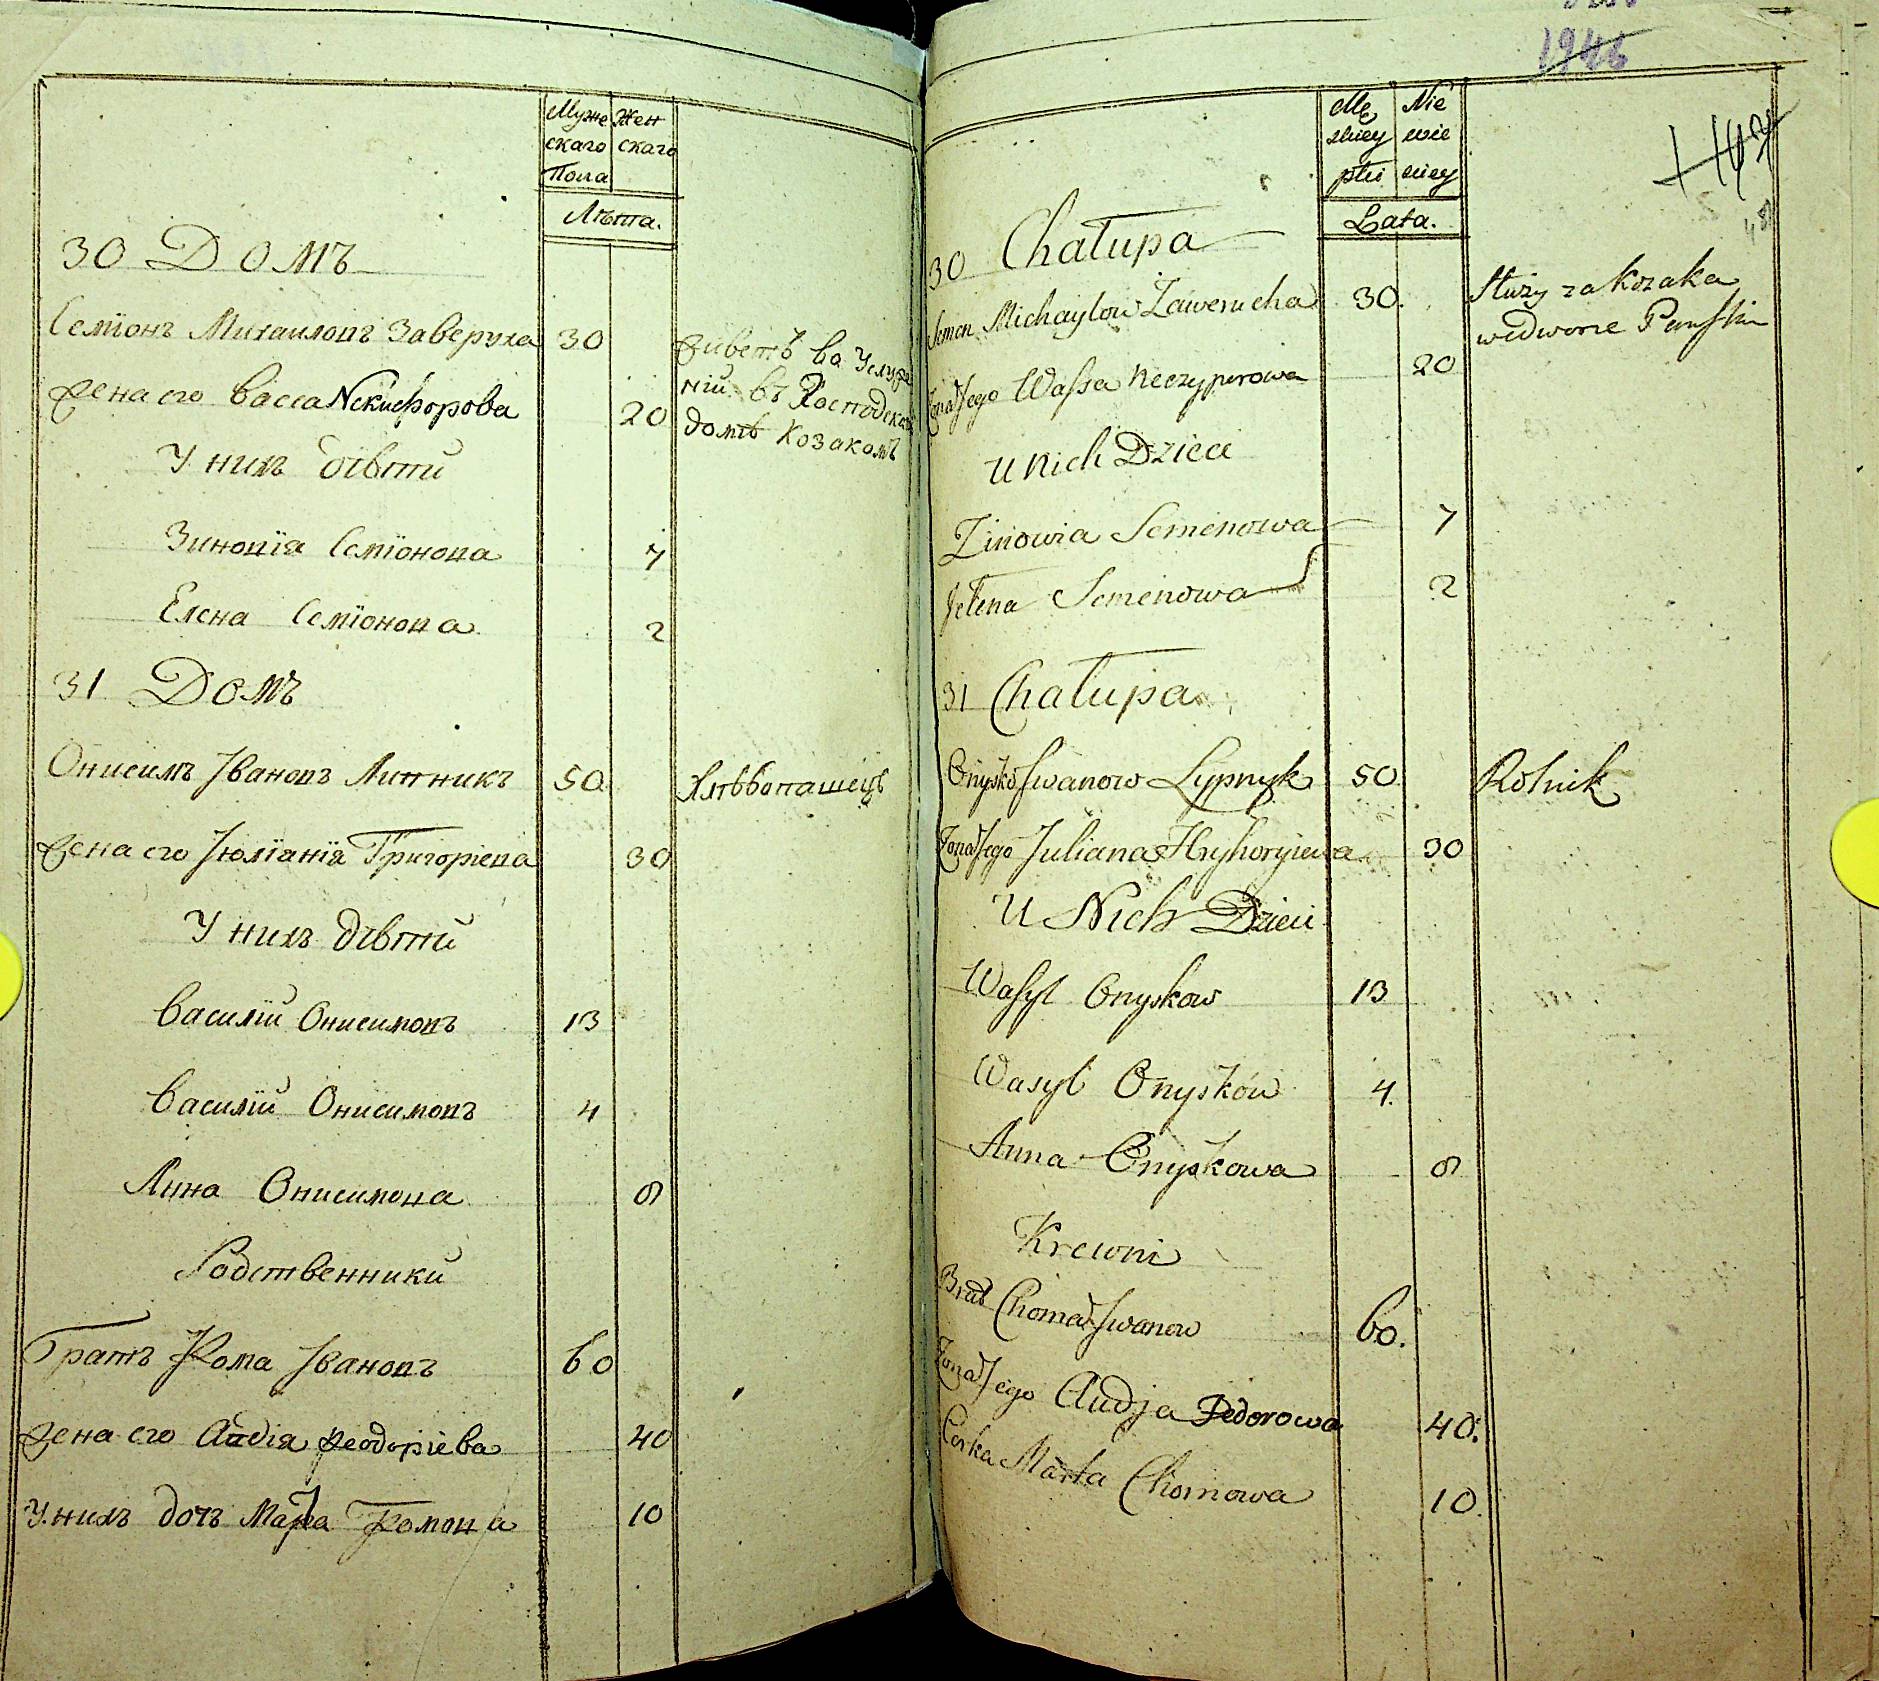 Муже Жен
скаго скаго
Пола
Лѣта.
30 Домъ
Семїонъ Михаиловъ Заверуха 30
Живетъ во Услуже
нїи въ Господском
домѣ козакомъ
Жена его Васса Никифорова 20
У нихъ дѣвти
Зиновїя Семїонова 7
Елена Семїонова 2
31 Домъ
Онисимъ Iвановъ Липникъ 50 Хлѣбопашецъ
Жена его Iюлїанїя Григорїева 30
У нихъ дѣвти
Василїй Онисимовъ 13
Василїй Онисимовъ 4
Анна Онисимова 8
Родственники
Братъ Хома Iвановъ 60
Жена его Авдїя Феодорїева 40
У нихъ дочъ Марѳа Хомова 10
1946
Mę Nie
zkiey wie
płci sciey
Lata.
30 Chałupa
Semen Michayłow Zawerucha 30.
Służy za kozaka
wedworze Pańskim
Zona Jego Wassa Neczyperowa 20
U Nich Dzieci
Zinowia Semenowa 7
Jełena Semenowa 2
31 Chałupa
Onysko Iwanow Lypnyk 50 Rolnik
Zona Jego Juliana Hryhoryiewa 30
U Nich Dzieci
Wasyl Onyskow 13
Wasyl Onyskow 4.
Anna Onyskowa 8
Krewni
Brat Choma Iwanow 60.
Zona Jego Audja Fedorowa 40.
Corka Marta Chomowa 10.